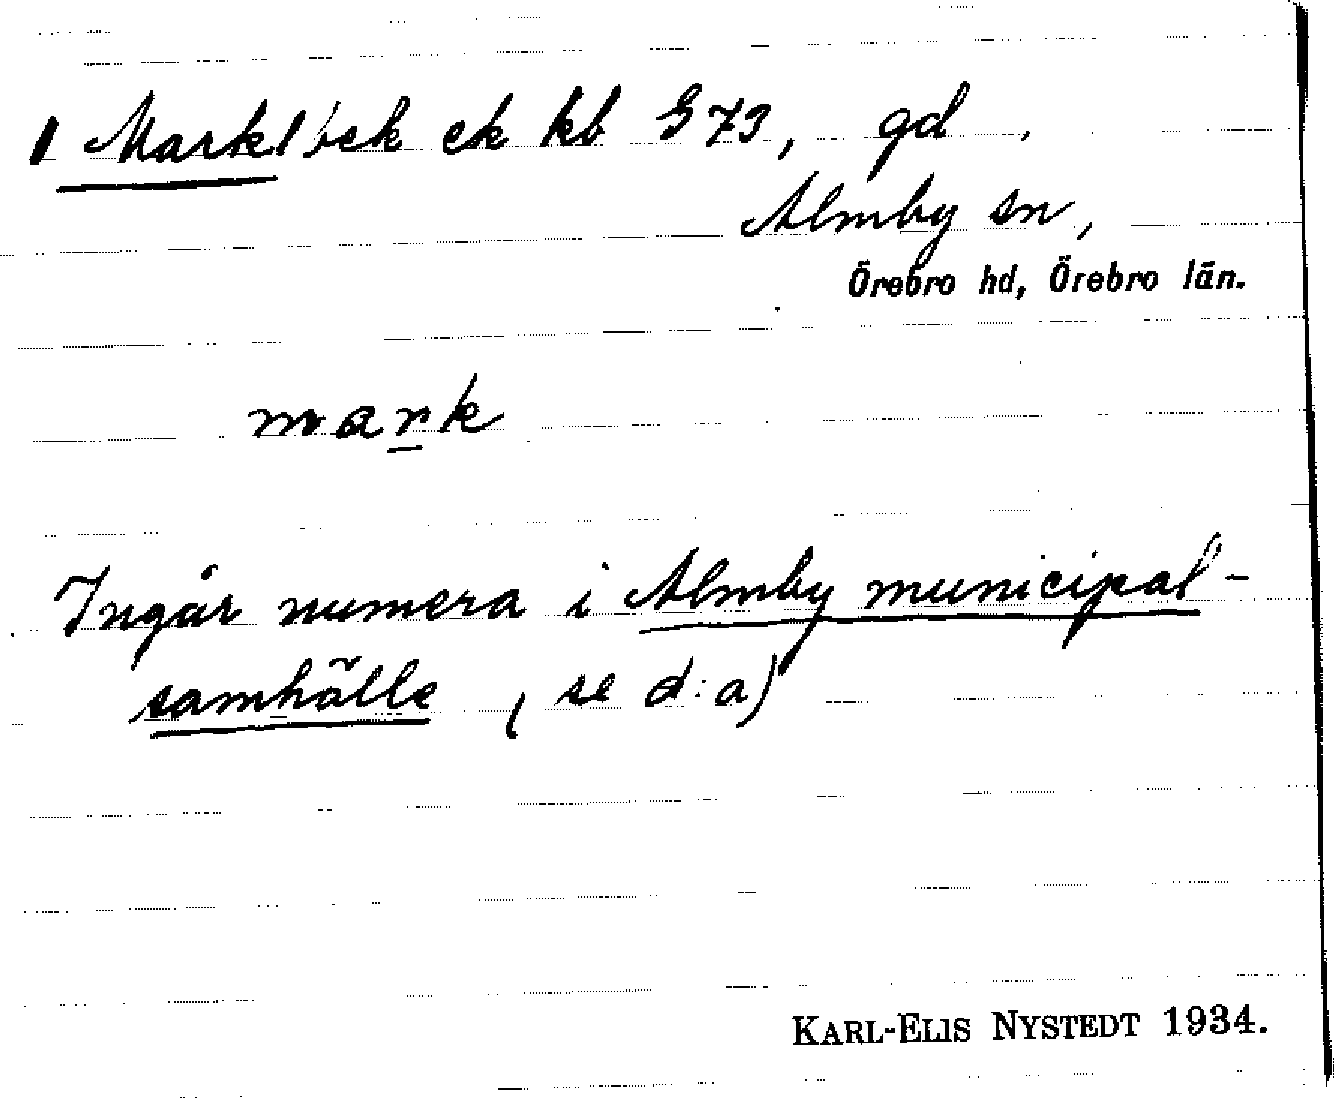 Mark/bek ek kb G 73, gd.
Almby sn,
Örebro hd, Örebro län.
mark
Ingår numera i Almby municipal-
samhälle (se d:a)
KARL-ELIS NYSTEDT 1934.